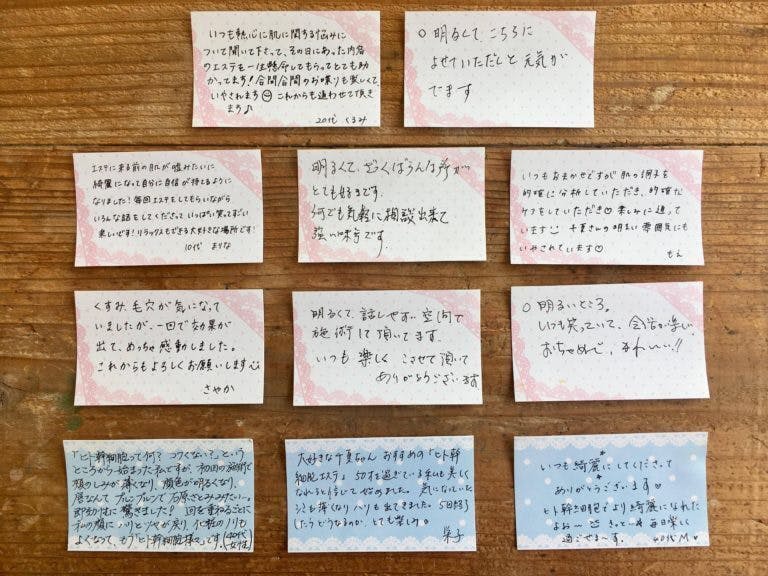 いつも熱心に肌に関する悩みに
ついて聞いて下さって、その日にあった内容
のエステを一生懸命してもらってとても助
かってます!合間合間のお喋りも楽しくて
いやされます これからも通わせて頂き
ます♪
20代 くるみ
○明るくて、こちらに
よせていただくと元気が
でます
エステに来る前の肌が嘘みたいに
綺麗になって自分に自信が持てるように
なりました!毎回エステをしてもらいながら
いろんな話をしてくださって いっぱい笑ってすごい
楽しいです!リラックスもできる大好きな場所です!
10代 まりな
明るくて、ざっくばらんな所が
とても好きです。
何でも気軽に相談出来て
強い味方です。
いつもおまかせですが肌の調子を
的確に分析していただき、的確な
ケアをしていただき♡楽しみに通って
います 千夏さんの明るい雰囲気にも
いやされています♡
もえ
くすみ、毛穴が気になって
いましたが、一回で効果が
出て、めっちゃ感動しました。
これからもよろしくお願いします
さやか
明るくて、話しやすい空間で
施術して頂いてます。
いつも楽しくこさせて頂いて
ありがとうございます
○明るいところ。
いつも笑っていて、会話が楽しい
おちゃめで、かわいい!!
「ヒト幹細胞って何? コワくない?」という
ところから始まった私ですが、初回の施術で
頬のしみが薄くなり、顔色が明るくなり、
唇なんてプルンプルンで石原さとみみたい…。
即効力に驚きました! 回を重ねるごとに
私の顔にハリとツヤが戻り、化粧のノリも
よくなって、もう「ヒト幹細胞様々」です。(40代女性)
大好きな千夏ちゃん おすすめの「ヒト幹
細胞エステ」 50才を過ぎている私も美しく
なれると信じて始めました。気になっていた
シミも薄くなりハリも出てきました。5回終了
したらどうなるのか、とても楽しみ。
栄子
いつも綺麗にしてくださって
ありがとうございます♡
ヒト幹細胞でより綺麗になれた
よぉ〜 きっと 毎日楽しく
過ごせま〜す。 40代 M♥